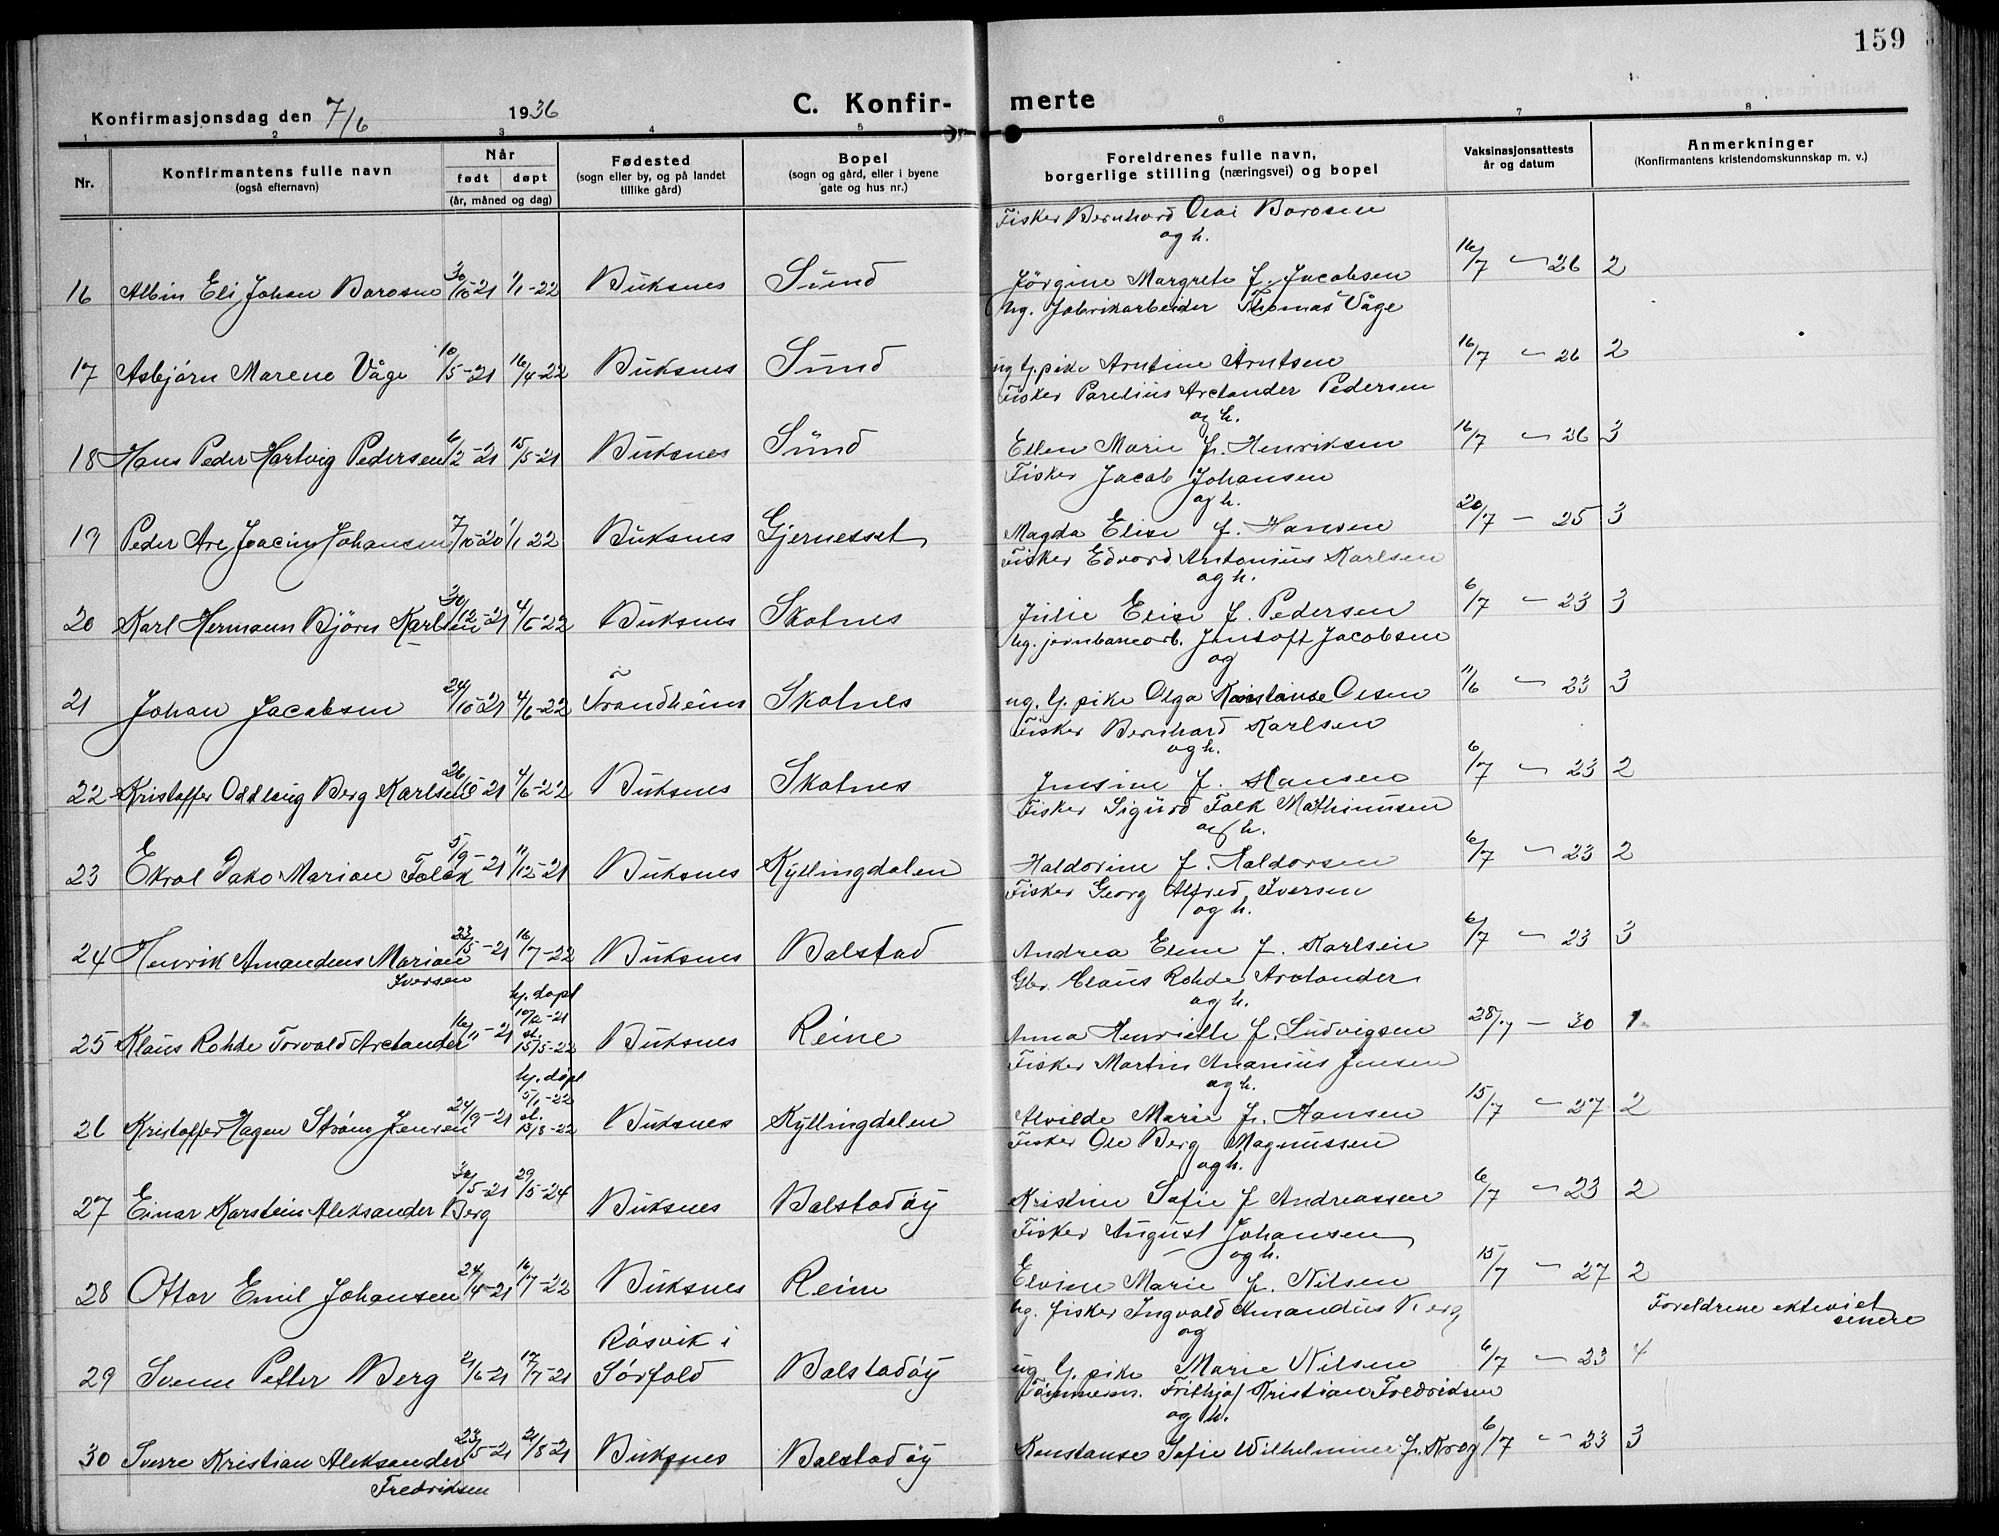 159
Konfirmasjonsdag den 7/6 1936
C. Konfir- merte
1 2 3 4 5 6 7 8
Nr.
Konfirmantens fulle navn
(også efternavn)
Når
født døpt
(år, måned og dag)
Fødested
(sogn eller by, og på landet
tillike gård)
Bopel
(sogn og gård, eller i byene
gate og hus nr.)
Foreldrenes fulle navn,
borgerlige stilling (næringsvei) og bopel
Vaksinasjonsattests
år og datum
Anmerkninger
(Konfirmantens kristendomskunnskap m. v.)
Fisker Bernhard Olai Barosen
og h.
16 Albin Eli Johan Barosen 30/10-21 1/1-22 Buksnes Sund Jörgine Margrete f. Jacobsen 16/7 - 26 2
Ug. fabrikarbeider Thomas Våge
17 Asbjørn Mareno Våge 10/5-21 16/4-22 Buksnes Sund ug G. pike Arntine Arntsen 16/7 - 26 2
Fisker Parelius Arctander Pedersen
og h.
18 Hans Peder Hartvig Pedersen 6/2-21 15/5-21 Buksnes Sund Ellen Marie f. Henriksen 16/7 - 26 3
Fisker Jacob Johansen
og h.
19 Peder Are Joacim Johansen 7/10-20 1/1 22 Buksnes Gjernesset Magda Elise f. Hansen 20/7 - 25 3
Fisker Edvard Antonius Karlsen
og h.
20 Karl Hermann Bjørn Karlsen 30/12-21 4/6-22 Buksnes Skotnes Julie Elise f. Pedersen 6/7 - 23 3
Ug. jernbanearb. Jentoft Jacobsen
og
21 Johan Jacobsen 24/10-21 4/6-22 Trondheim Skotnes ug. G. pike Olga Konstanse Olsen 11/6 - 23 3
Fisker Bernhard Karlsen
og h.
22 Kristoffer Oddlaug Berg Karlsen 26/10-21 4/6-22 Buksnes Skotnes Jensine f. Hansen 6/7 - 23 2
Fisker Sigurd Falk Mathinussen
og h.
23 Ekrol Dako Marian Falck 5/9-21 11/12-21 Buksnes Kyllingdalen Haldorine f. Haldorsen 6/7 - 23 2
Fisker Georg Alfred Iversen
og h.
24 Henrik Amandeus Marian 23/5-21 16/7-22 Buksnes Balstad Andrea Eline f. Karlsen 6/7 - 23 3
Iversen
Gbr. Claus Rohde Arctander
og h.
hj. døpt
10/12-21
st.
25 Klaus Rohde Torvald Arctander 16/11-21 15/5-22 Buksnes Reine Anna Henriette f. Ludvigsen 28/7 - 30 1
Fisker Martin Ananius Jensen
og h.
hj. døpt
5/1-22
st.
26 Kristoffer Hagen Strøm Jensen 24/9-21 13/8-22 Buksnes Kyllingdalen Alvilde Marie f. Hansen 15/7 - 27 2
Fisker Ole Berg Magnussen
og h.
27 Einar Karstein Aleksander Berg 30/5-21 29/5-24 Buksnes Balstadøy Kristine Sofie f Andreassen 6/7 - 23 2
Fisker August Johansen
og h.
28 Ottar Emil Johansen 24/4-21 16/7-22 Buksnes Reine Elvine Marie f. Nilsen 15/7 - 27 2
Ug. fisker Ingvald Amandius Berg
og
Foreldrene ekteviet
senere
29 Svenn Petter Berg 21/6-21 17/7-21 Røsvik i
Sørfold Balstadøy ug G. pike Marie Nilsen 6/7 - 23 4
Tømmerm. Frithjof Kristian Fredriksen
og h.
30 Sverre Kristian Aleksander 23/5-21 21/8-21 Buksnes Balstadøy Konstanse Sofie Wilhelmine f. Krog 6/7 - 23 3
Fredriksen